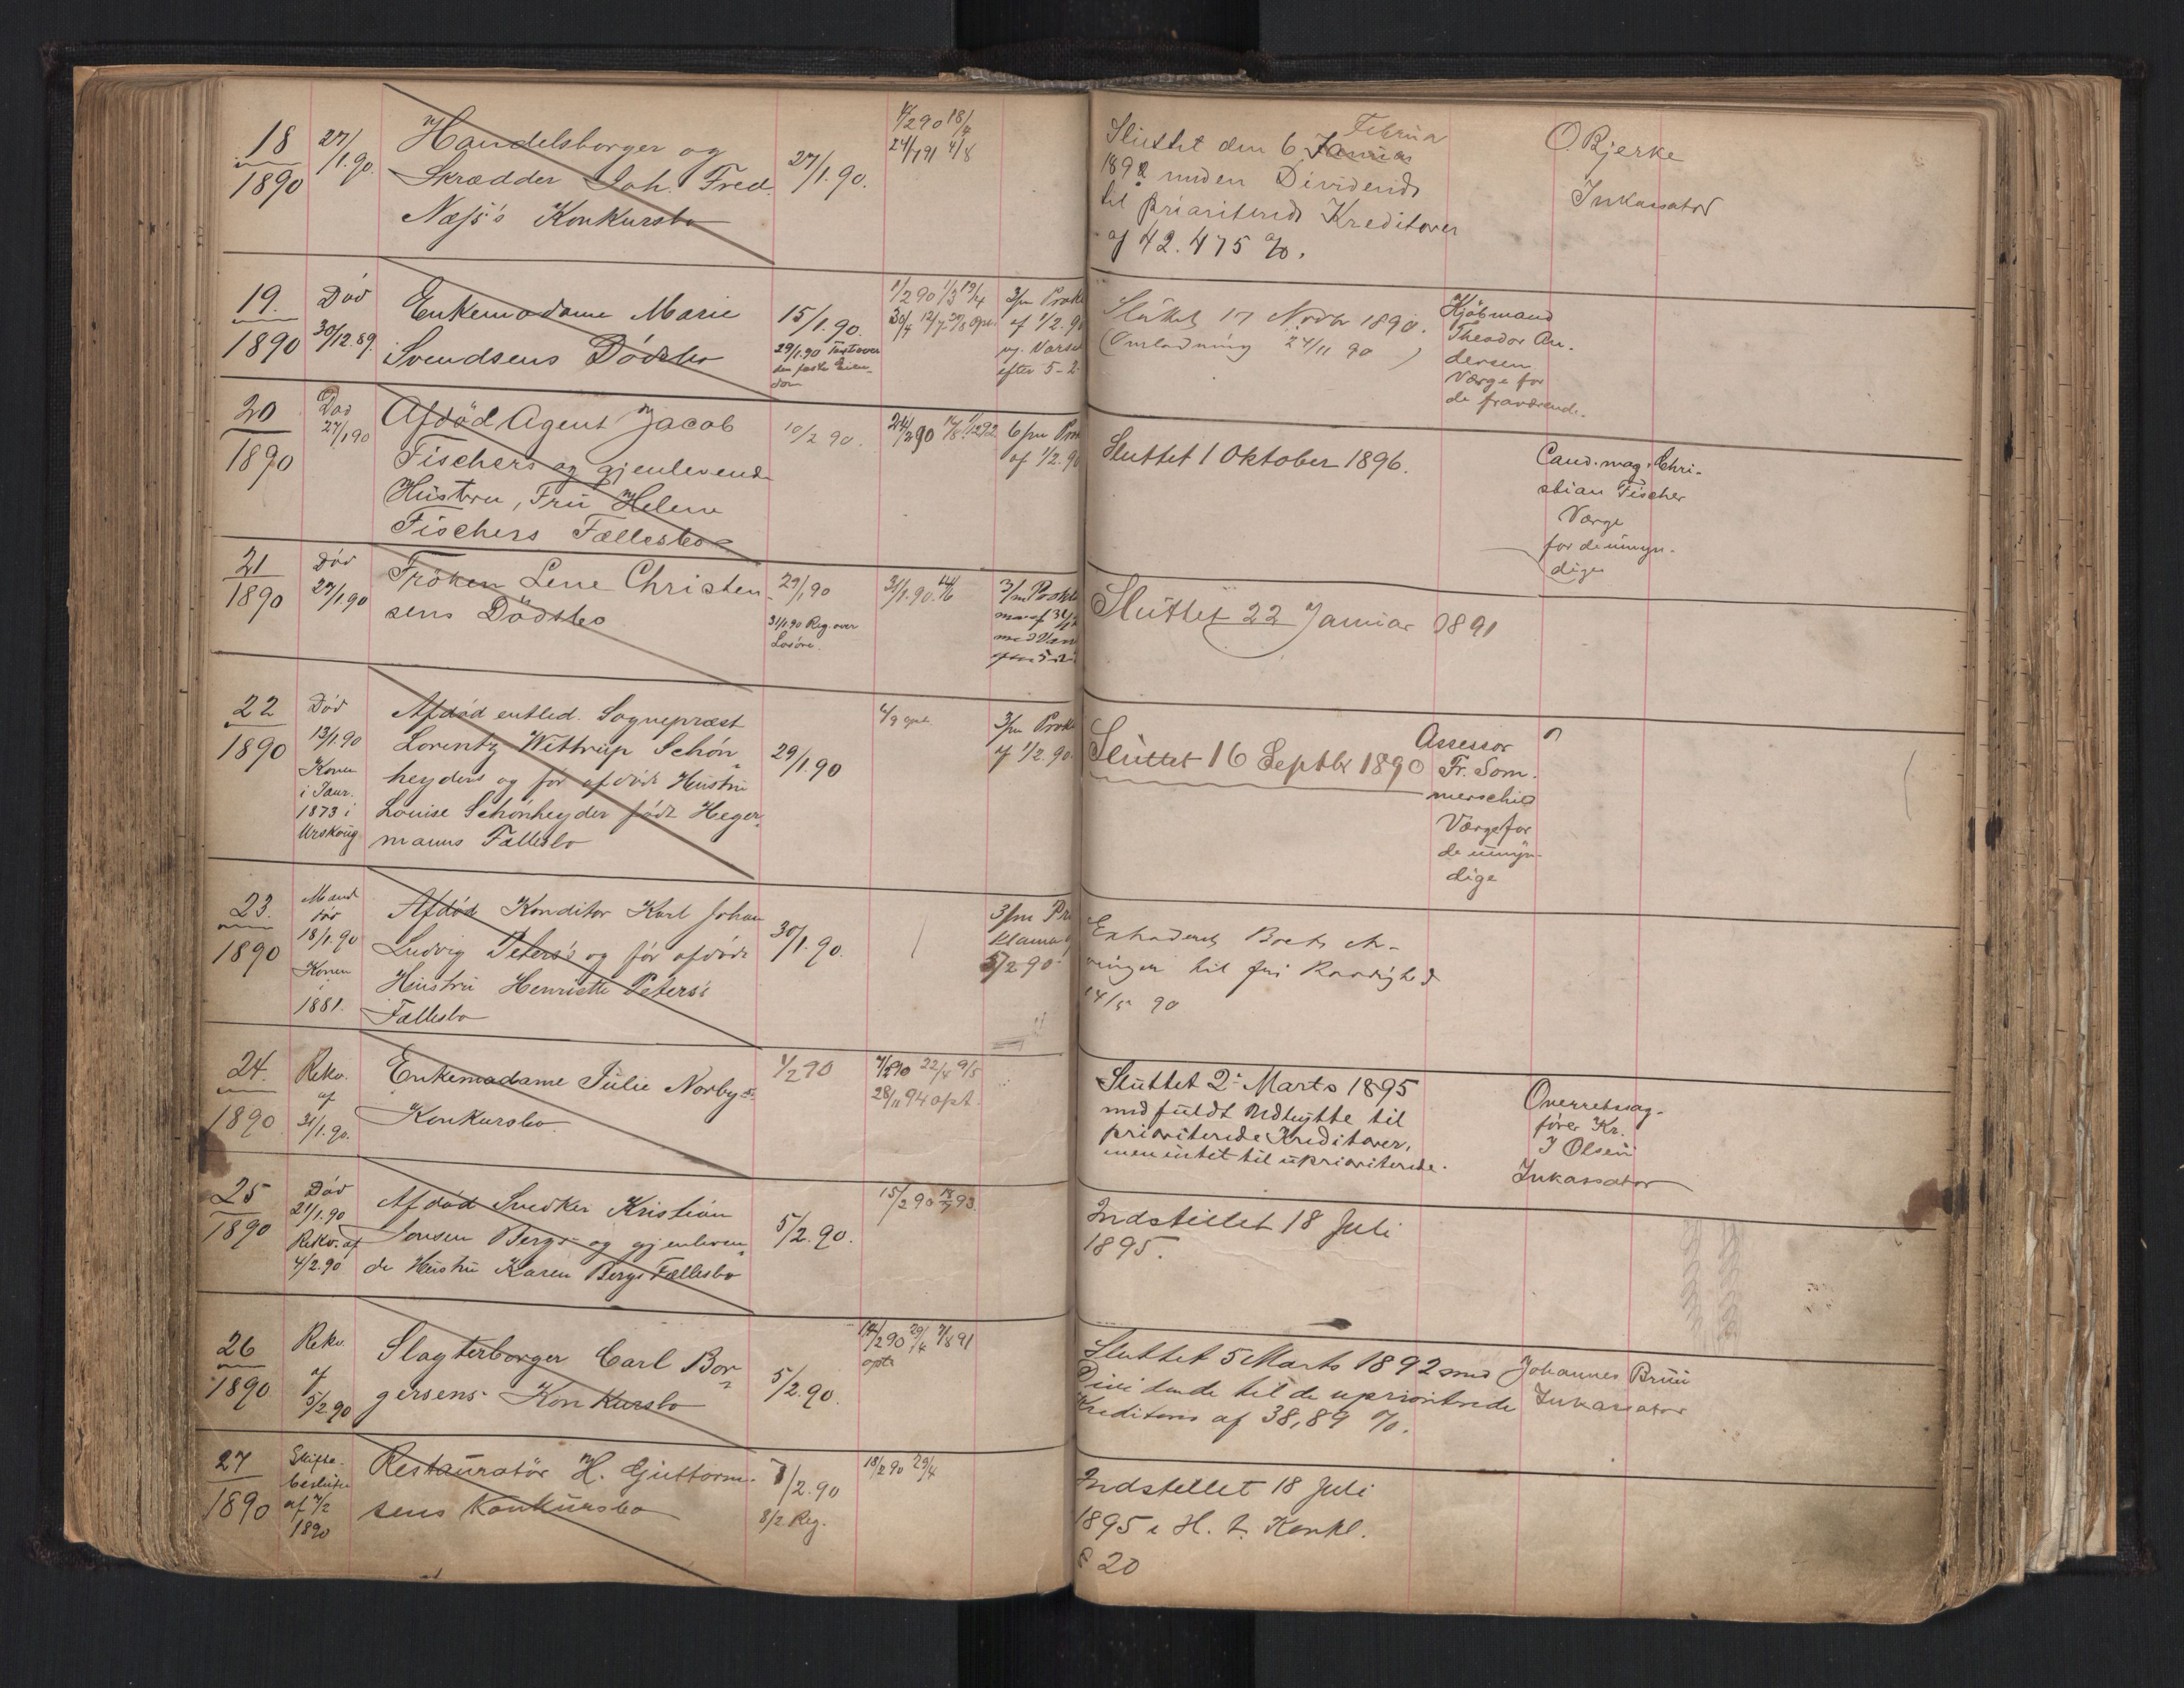 18
1890
27/1.90.
Handelsborger og
Skrædder Joh. Fred.
Næss's Konkursbo
27/1.90.
Sluttet den 6 Januar Februar
1892 uden Dividende
til prioriterede Kreditorer
af 42.475 %.
O Bjerke
Inkassator
19.
1890
Död
30/12.89.
Enkemadame Marie
Svendsens Dødsbo
15/1.90.
29/1.90 Taxt over
den faste Eien-
dom
3/m Prokl
af 1/2.90
efter 5-2
Sluttet 17 Novbr 1890.
(Omladning 24/11 90)
Kjøbmand
Theodor An-
dersen
Værge for
de fraværende.
20
1890
Död
27/1 90
Afdöd Agent Jacob
Fischers og gjenlevende
Hustru, Fru Helene
Fischers Fællesbo
10/2 90.
6/m Prok
af 1/2.90
Sluttet 1 Oktober 1896.
Cand. mag. Chri-
stian Fischer
Værge
for de umyn-
dige
21
1890
Död
27/1.90
Fröken Lene Christen
sens Dödsbo
29/1 90
31/1.90 Reg. over
Løsöre.
31/1.90.
3/m Prokla
Sluttet 22 Januar 1891
22
1890
Död
13/1.90
Konen
i Janr.
1873 i
Urskoug
Afdöd entled. Sognepræst
Lorentz Wittrup Schön
heyders og før afdöde Hustru
Louise Schönheyder född Heger
manns Fællesbo
29/1.90
4/9 opt.
3/m Prok
af 1/2.90.
Sluttet 16 Septbr 1890
Assessor
Fr. Som.
merschild
Værge for
de umyn-
dige
23.
1890
Mand
död
18/1.90
Konen
i
1881.
Afdöd Konditor Karl Johan
Ludvig Peters's og før afdöde
Hustru Henriette Peters's
Fællesbo
30/1.90.
3/m Pro
klama
5/2 90
Extraderet Boets Ar-
vinger til fri Raadighed
14/5 90
24.
1890.
Rekv.
af
31/1.90.
Enkemadame Julie Norbys
Konkursbo.
1/2 90
28/11 94 opt.
Sluttet 2. Marts 1895
med fuldt Udbytte til
prioriterede Kreditorer,
men intet til uprioriterede.
Overretssag-
fører Kr.
J Olsen
Inkassator
25
1890
Död
21/1.90
Rekv. af
4/2.90
Afdöd Snedker Kristian
Jonsen Bergs og gjenleven
de Hustru Karen Bergs Fællesbo
5/2.90.
15/2 90
Indstillet 18 Juli
1895.
26
1890
Rekv.
af
5/2.90
Slagterborger Carl Bor
gersens Konkursbo
5/2.90.
14/2 90 29/4 7/8 91
opt
Sluttet 5 Marts 1892 med
Dividende til de uprioriterede
Kreditorer af 38,89 %.
Johannes Bruu
Inkassator
27
1890
Skifte-
beslutn
af 7/2
1890
Restauratör H. Guttorm-
sens Konkursbo
8/2.90
8/2 Reg.
18/2 90 29/4
Indstillet 18 Juli
1895 i H. t. Konkl.
§ 20